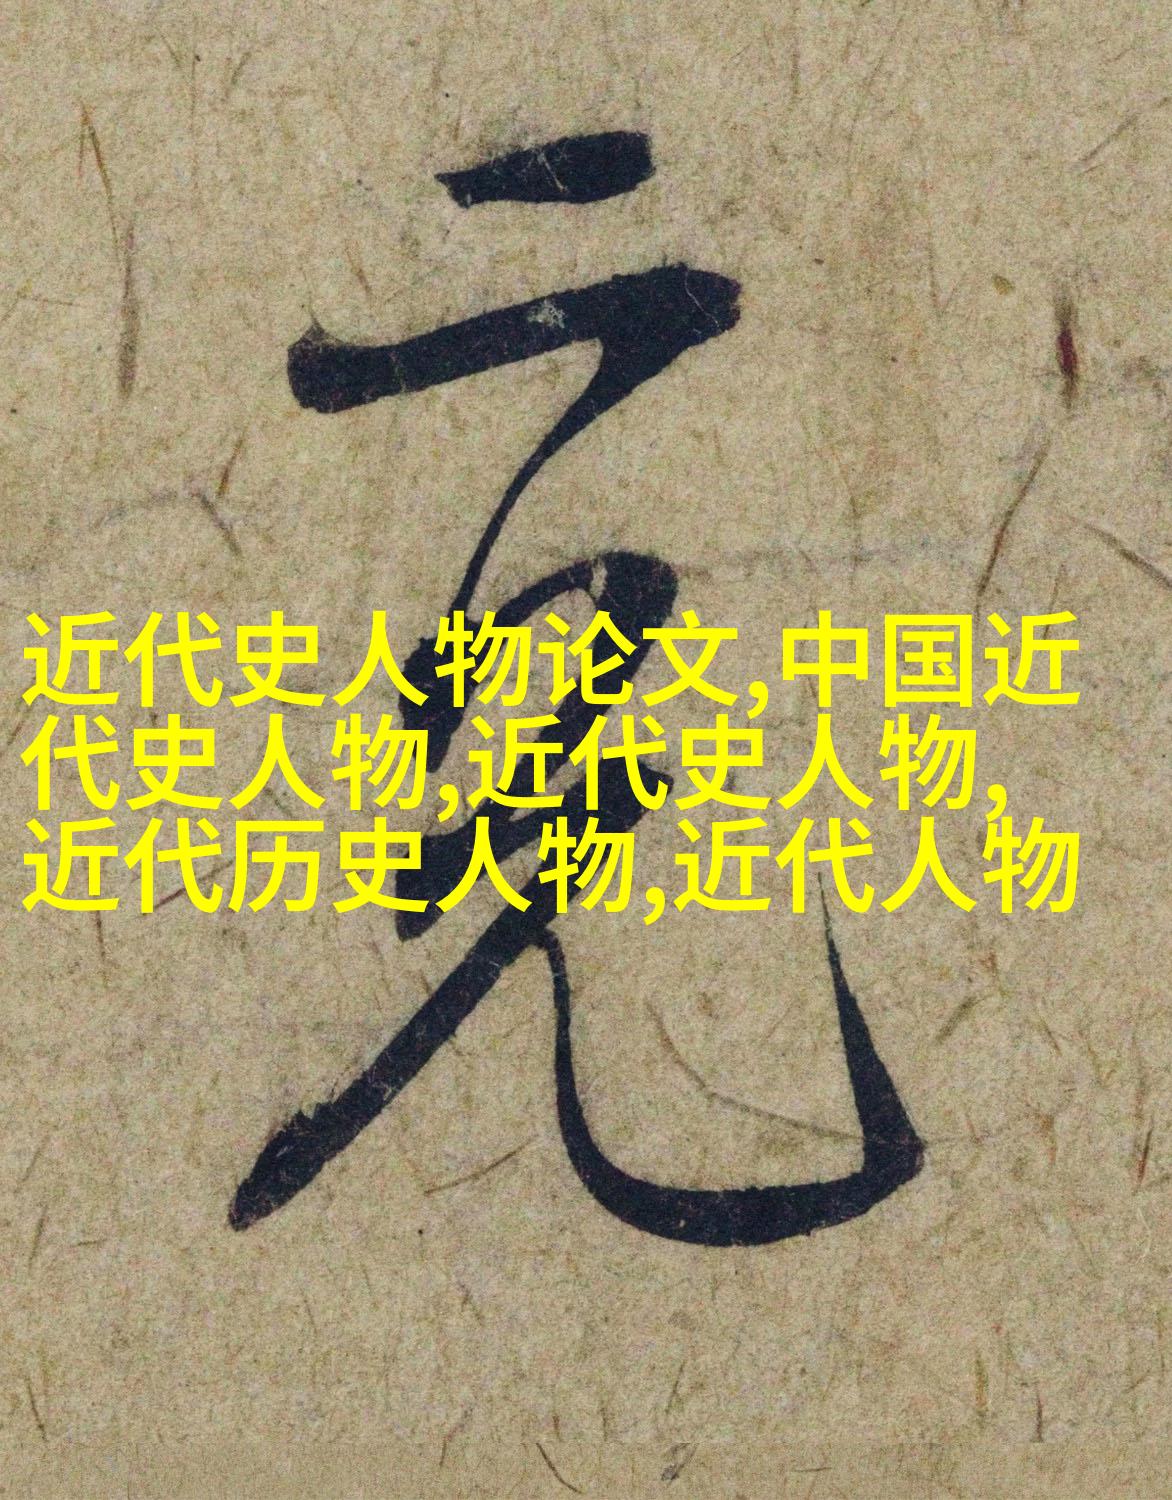 近代史人物论文,中国近
代史人物,近代史人物,
近代历史人物,近代人物